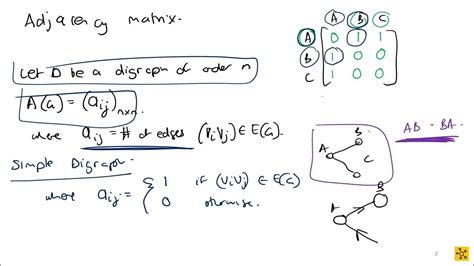 Adjacency matrix.
Let D be a digraph of order n
A(G) = (aij)n×n
where aij = # of edges (ViVj) ∈ E(G).
Simple Digraph
where aij = { 1 if (ViVj) ∈ E(G)
0 otherwise.
A B C
A 0 1 1
B 1 0 0
C 1 0 0
B
A
C
AB - BA.
B
A
2